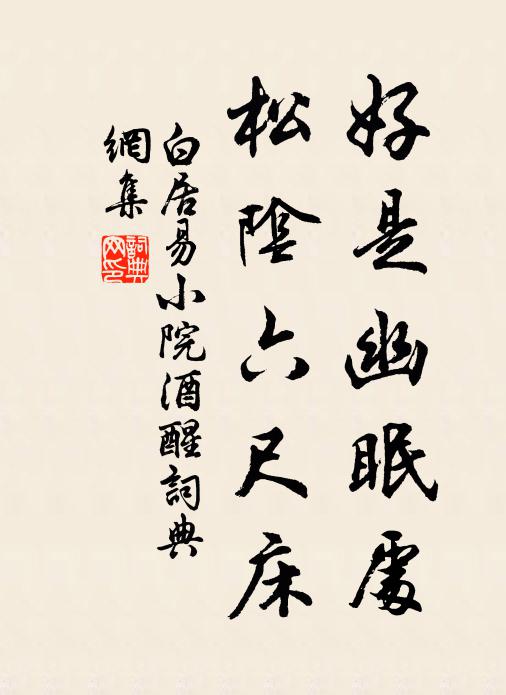 好是幽眠處
松陰六尺床
白居易小院酒醒詞典
網集
詞典
网印